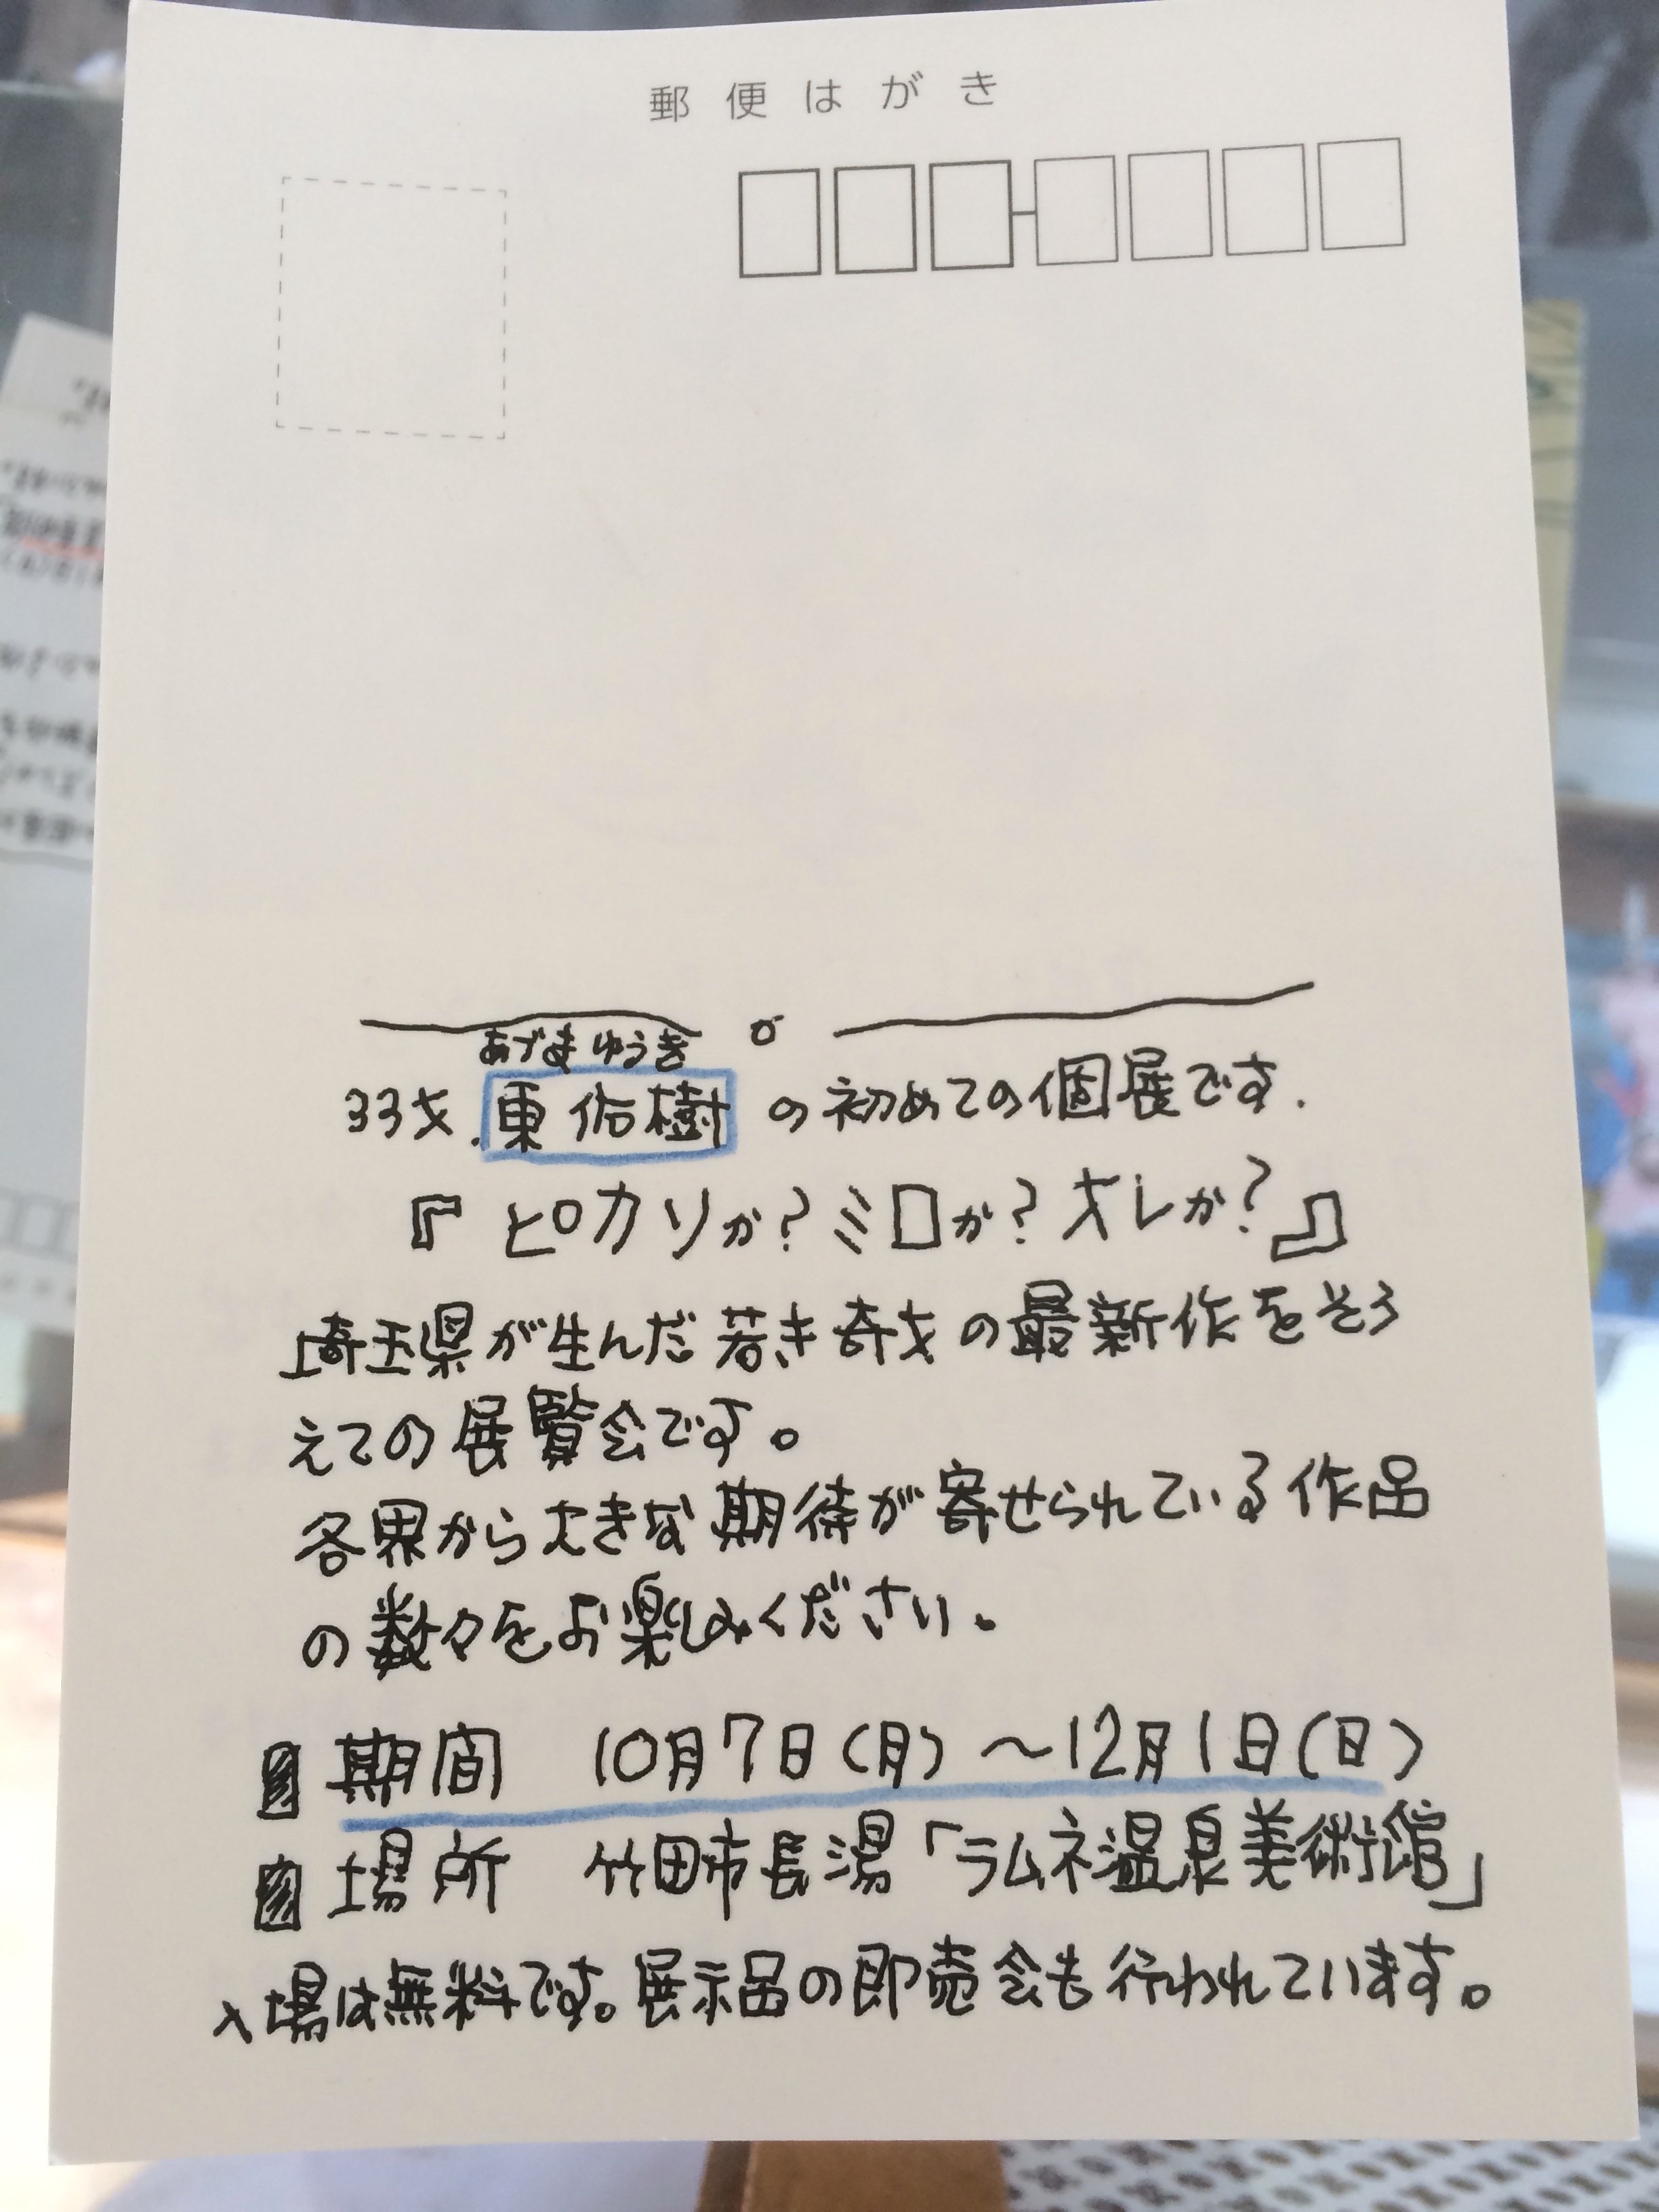 郵便はがき
あづま ゆうき
33才. 東 佑樹 の初めての個展です.
『ピカソか?ミロか?オレか?』
埼玉県が生んだ若き奇才の最新作をそろ
えての展覧会です。
各界から大きな期待が寄せられている作品
の数々をお楽しみください.
期間 10月7日(月)~12月1日(日)
場所 竹田市長湯「ラムネ温泉美術館」
入場は無料です。展示品の即売会も行われています。